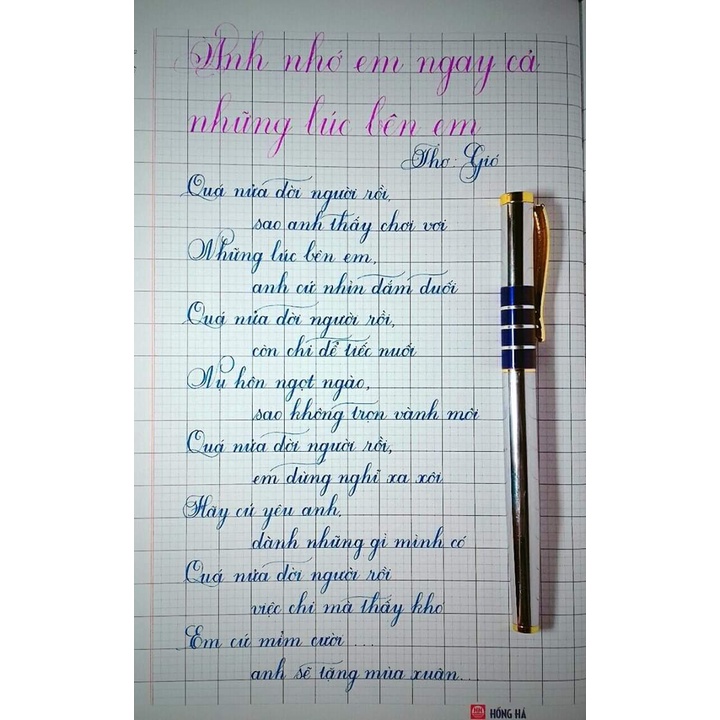 Anh nhớ em ngay cả
những lúc bên em
Thơ: Gió
Quá nửa đời người rồi,
sao anh thấy chơi vơi
Những lúc bên em,
anh cứ nhìn đắm đuối
Quá nửa đời người rồi,
còn chi để tiếc nuối
Nụ hôn ngọt ngào,
sao không trọn vành môi
Quá nửa đời người rồi,
em đừng nghĩ xa xôi
Hãy cứ yêu anh,
dành những gì mình có
Quá nửa đời người rồi
việc chi mà thấy khó
Em cứ mỉm cười ...
anh sẽ tặng mùa xuân...
HỒNG HÀ